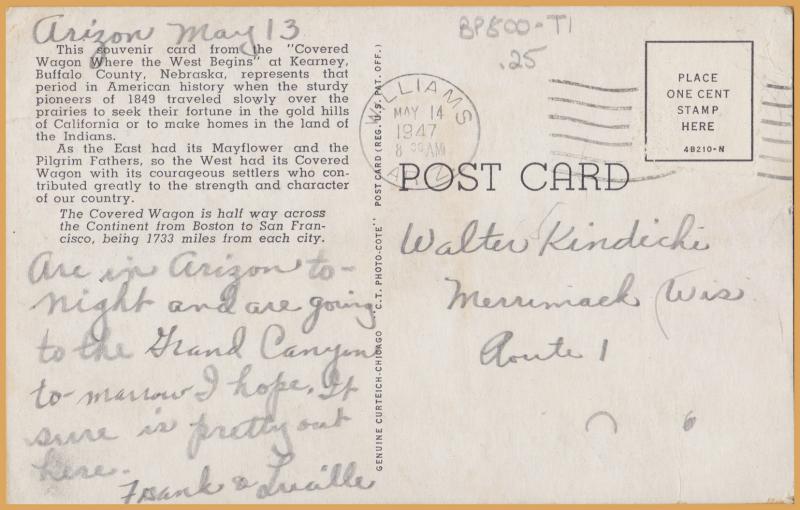 Arizon May 13
This souvenir card from the "Covered
Wagon Where the West Begins" at Kearney,
Buffalo County, Nebraska, represents that
period in American history when the sturdy
pioneers of 1849 traveled slowly over the
prairies to seek their fortune in the gold hills
of California or to make homes in the land of
the Indians.
As the East had its Mayflower and the
Pilgrim Fathers, so the West had its Covered
Wagon with its courageous settlers who con-
tributed greatly to the strength and character
of our country.
The Covered Wagon is half way across
the Continent from Boston to San Fran-
cisco, being 1733 miles from each city.
Are in Arizon to-
night and are going
to the Grand Canyon
to-marrow I hope. It
sure is pretty out
here.
Frank & Lucille
GENUINE CURTEICH-CHICAGO "C.T. PHOTO-COTE" POST CARD (REG. U.S. PAT. OFF.)
BP500-T1
.25
WILLIAMS
MAY 14
1947
8 AM
ARIZ.
PLACE
ONE CENT
STAMP
HERE
4B210-N
POST CARD
Walter Kindichi
Merrimack Wis
Route 1
6